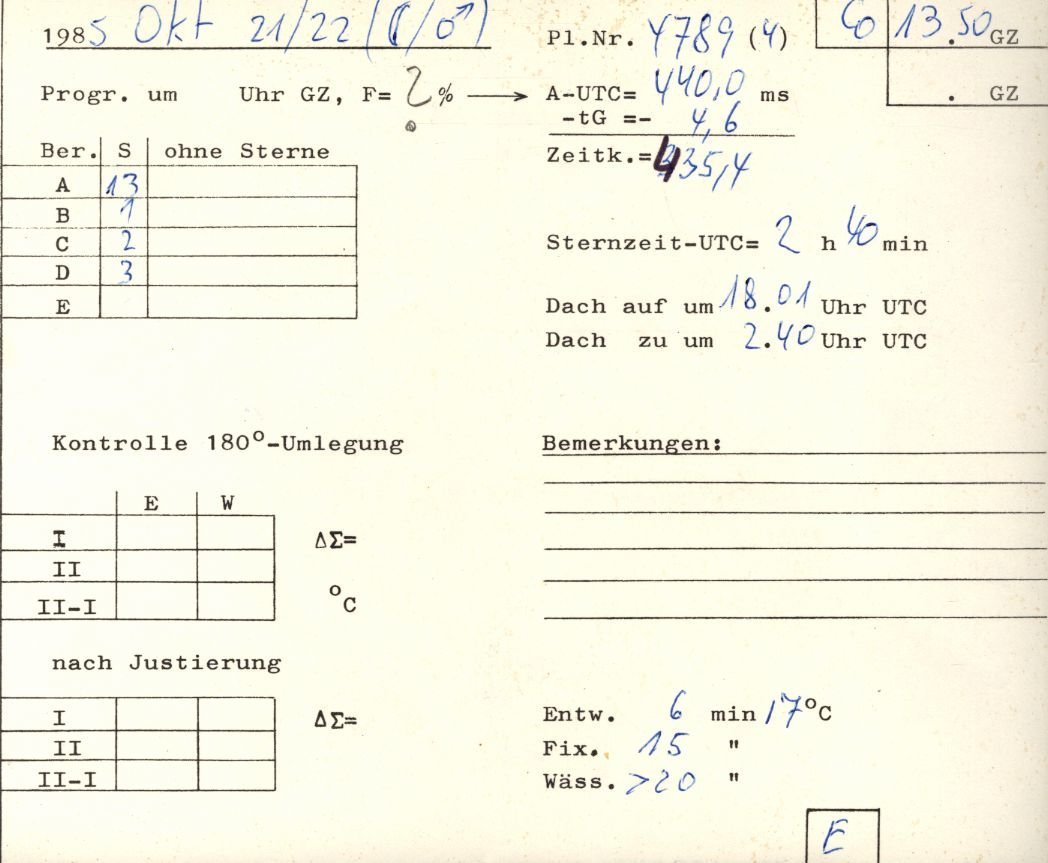 1985 Okt 21/22 (☾/♂)
Pl.Nr. 4789 (4)
Co 13.50 GZ
. GZ
Progr. um Uhr GZ, F= ? % ⟶ A-UTC= 440,0 ms
-tG =- 4,6
Zeitk.= 435,4
Ber. S ohne Sterne
A 13
B 1
C 2
D 3
E
Sternzeit-UTC= 2 h 40 min
Dach auf um 18.01 Uhr UTC
Dach zu um 2.40 Uhr UTC
Kontrolle 180°-Umlegung
E W
I ΔΣ=
II
II-I °C
Bemerkungen:
nach Justierung
I ΔΣ=
II
II-I
Entw. 6 min 17°C
Fix. 15 "
Wäss. >20 "
E